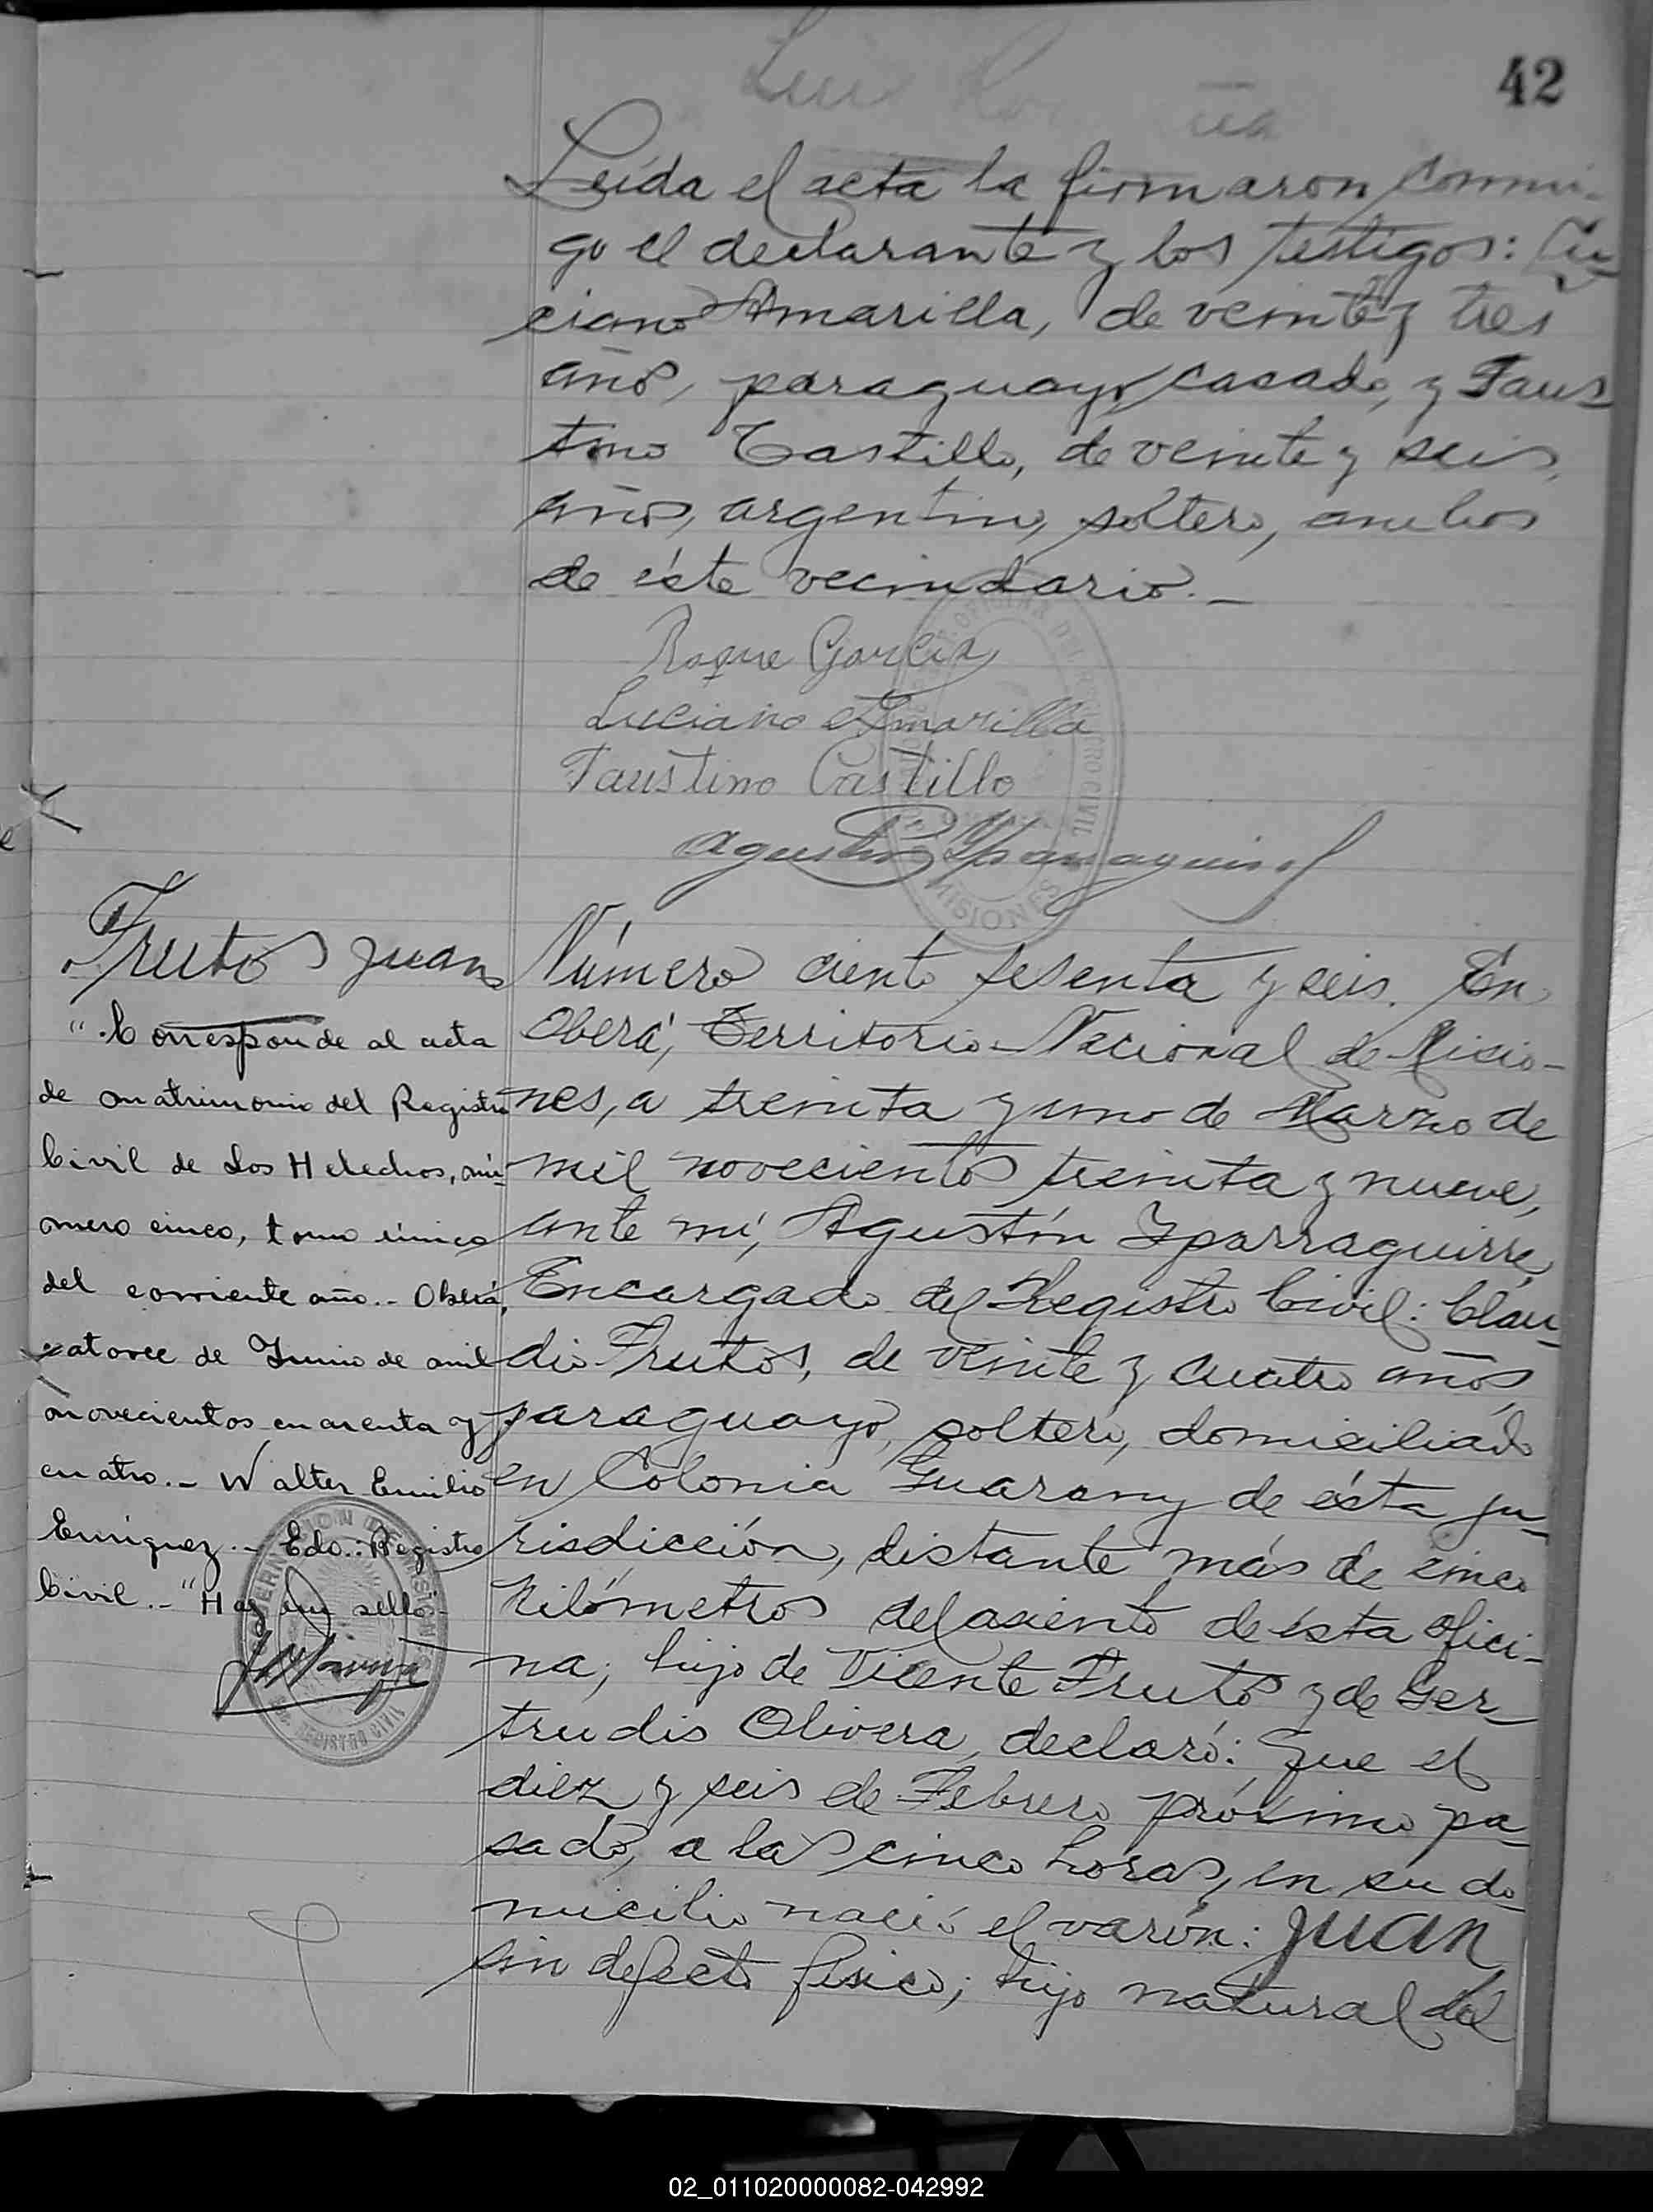 42
Leída el acta la firmaron conmi-
go el declarante y los testigos: Lu-
ciano Amarilla, de veinte y tres
años, paraguayo, casado, y Faus-
tino Castillo, de veinte y seis
años, argentino, soltero, ambos
de éste vecindario.-
Roque Garcia
Luciano Amarilla
Faustino Castillo
Agustin Yparraguirre
MISIONES
Frutos Juan
"Corresponde al acta
de matrimonio del Registro
Civil de Los Helechos, nú-
mero cinco, tomo único
del corriente año.- Oberá,
catorce de Junio de mil
novecientos cuarenta y
cuatro.- Walter Emilio
Enriquez.- Edo.: Registro
Civil.-" Hay un sello.-
REGISTRO CIVIL
Número ciento sesenta y seis. En
Oberá, Territorio Nacional de Misio-
nes, a treinta y uno de Marzo de
mil novecientos treinta y nueve,
ante mí, Agustín Yparraguirre,
Encargado del Registro Civil: Clau-
dio Frutos, de veinte y cuatro años,
paraguayo, soltero, domiciliado
en Colonia Guarany de ésta ju-
risdicción, distante más de cinco
kilómetros del asiento de ésta ofici-
na; hijo de Vicente Frutos y de Ger-
trudis Olivera, declaró: Que el
diez y seis de Febrero próximo pa-
sado, a las cinco horas, en su do-
micilio nació el varón: Juan
sin defecto físico; hijo natural del
02_011020000082-042992